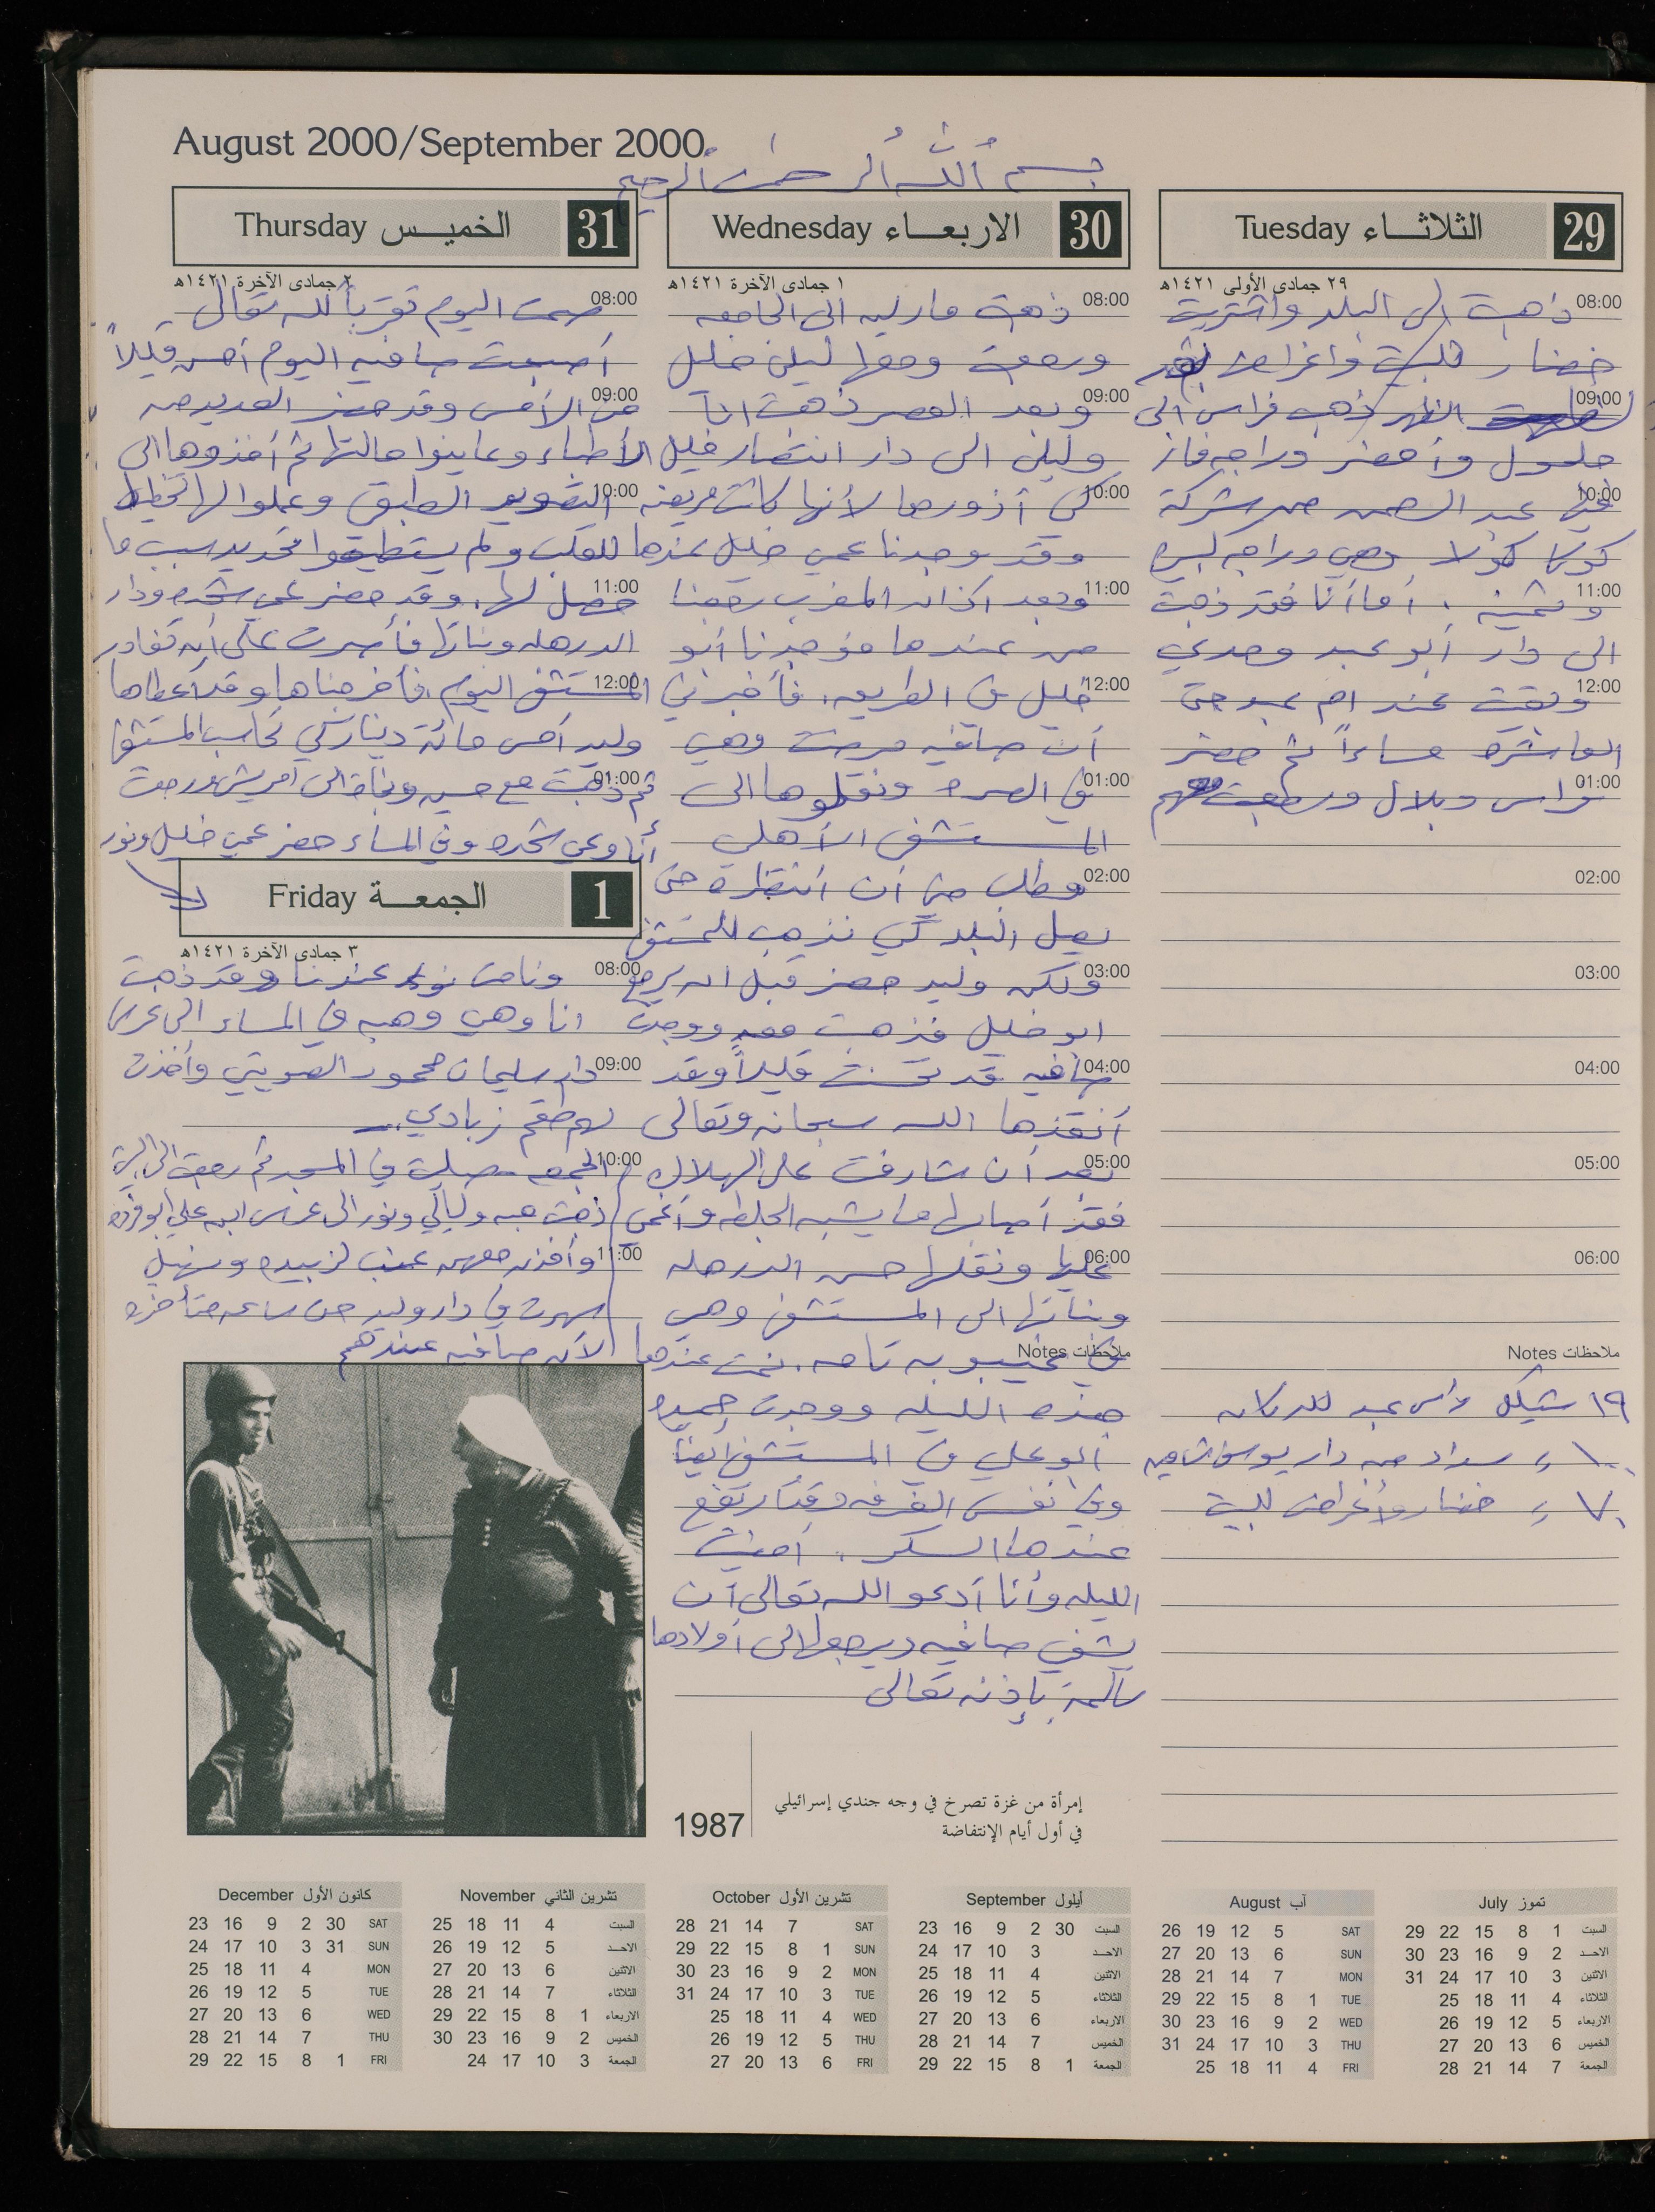 August 2000/September 2000
بسم الله الرحمن الرحيم
29 الثلاثاء Tuesday
٢٩ جمادى الأولى ١٤٢١هـ
08:00 ذهبت الى البلد واشتريت
خضار للبيت واغراض
09:00 الظهر ذهب فراس الى
حلحول وأحضر
10:00 عبد الرحمن من شركة
كوكا كولا وهي دراجه كبيره
11:00 وثمينه . أما أنا فقد ذهبت
الى دار أبو عبد وهدي
12:00 وبقيت عند ام عبد حتى
العاشره مساءاً ثم حضر
01:00 فراس وبلال ورجعت معهم
02:00
03:00
04:00
05:00
06:00
ملاحظات Notes
١٩ شيكل لأم عبد للدكان
١٠٠ // سداد من دار يوسف
٧٠ // خضار وأغراض للبيت
30 الاربعاء Wednesday
١ جمادى الآخرة ١٤٢١هـ
08:00 ذهبت ماريه الى الجامعه
ورجعت ومعها ليلى خليل
09:00 وبعد العصر ذهبت انا
وليلى الى دار انتصار خليل
10:00 كي أزورها لأنها كانت مريضه
وقد وجدنا عمي خليل عندها
11:00 وبعد اذان المغرب رجعنا
من عندها فوجدنا أبو
12:00 خليل في الطريق . فأخبرني
أن صافيه مرضت وهي
01:00 في الصره ونقلوها الى
المستشفى الأهلي
02:00 وطلب مني أن أنتظره حتى
يصل البلد كي نذهب للمستشفى
03:00 ولكن وليد حضر قبل ان يرجع
ابو خليل فذهبت معه ووجدت
04:00 صافيه قد تحسنت قليلاً وقد
أنقذها الله سبحانه وتعالى
05:00 بعد أن شارفت على الهلاك
فقد أصابها ما يشبه الجلطه وأغمي
06:00 عليها ونقلها حسن الدرهله
وبناتها الى المستشفى وهي
ملاحظات Notes
في غيبوبه تامه . نمت عندها
هذه الليله ووجدت حميده
أبو علي في المستشفى أيضاً
وفي نفس الغرفه وقد ارتفع
عندها السكر . أمضيت
الليله وأنا أدعو الله تعالى أن
يشفي صافيه ويرجعها لى أولادها
سالمة بإذنه تعالى
31 الخميس Thursday
٢ جمادى الآخرة ١٤٢١هـ
08:00 صمت اليوم تقرباً لله تعالى
أصبحت صافيه اليوم أحسن قليلاً
09:00 من الأمس وقد حضر العديد من
الأطباء وعاينوا حالتها ثم أخذوها الى
10:00 التصوير الطبقي وعملوا لها تخطيط
للقلب ولم يستطيعوا تحديد سبب ما
11:00 حصل لها . وقد حضر عمي شحده ودار
الدرهله وبناتها فأصرت على أن تغادر
12:00 المستشفى اليوم فأخرجناها وقد أعطاها
وليد أمس مائة دينار كي تحاسب المستشفى
01:00 ثم ذهبت مع حسن وبناته الى ورجعت
أنا وعمي شحده وفي المساء حضر عمي خليل ونور
1 الجمعة Friday
٣ جمادى الآخرة ١٤٢١هـ
08:00 ونامت نور عندنا وقد ذهبت
انا وهي وهبه في المساء الى عرس
09:00 دار سليمان محمود الصويتي وأخذت
لهم طقم زبادي ..
10:00 الجمعه صليت في المسجد ثم رجعت الى البيت
ذهبت هبه وليالي ونور الى عرس ابن علي أبو
11:00 وأخذن معهن عنب لزبيده ونهيل
سهرت في دار وليد حتى ساعه متأخره
لأن صافيه عندهم
1987
إمرأة من غزة تصرخ في وجه جندي إسرائيلي
في أول أيام الإنتفاضة
تموز July
السبت 1 8 15 22 29
الاحد 2 9 16 23 30
الاثنين 3 10 17 24 31
الثلاثاء 4 11 18 25
الاربعاء 5 12 19 26
الخميس 6 13 20 27
الجمعة 7 14 21 28
آب August
SAT 5 12 19 26
SUN 6 13 20 27
MON 7 14 21 28
TUE 1 8 15 22 29
WED 2 9 16 23 30
THU 3 10 17 24 31
FRI 4 11 18 25
أيلول September
السبت 30 2 9 16 23
الاحد 3 10 17 24
الاثنين 4 11 18 25
الثلاثاء 5 12 19 26
الاربعاء 6 13 20 27
الخميس 7 14 21 28
الجمعة 1 8 15 22 29
تشرين الأول October
SAT 7 14 21 28
SUN 1 8 15 22 29
MON 2 9 16 23 30
TUE 3 10 17 24 31
WED 4 11 18 25
THU 5 12 19 26
FRI 6 13 20 27
تشرين الثاني November
السبت 4 11 18 25
الاحد 5 12 19 26
الاثنين 6 13 20 27
الثلاثاء 7 14 21 28
الاربعاء 1 8 15 22 29
الخميس 2 9 16 23 30
الجمعة 3 10 17 24
كانون الأول December
SAT 30 2 9 16 23
SUN 31 3 10 17 24
MON 4 11 18 25
TUE 5 12 19 26
WED 6 13 20 27
THU 7 14 21 28
FRI 1 8 15 22 29